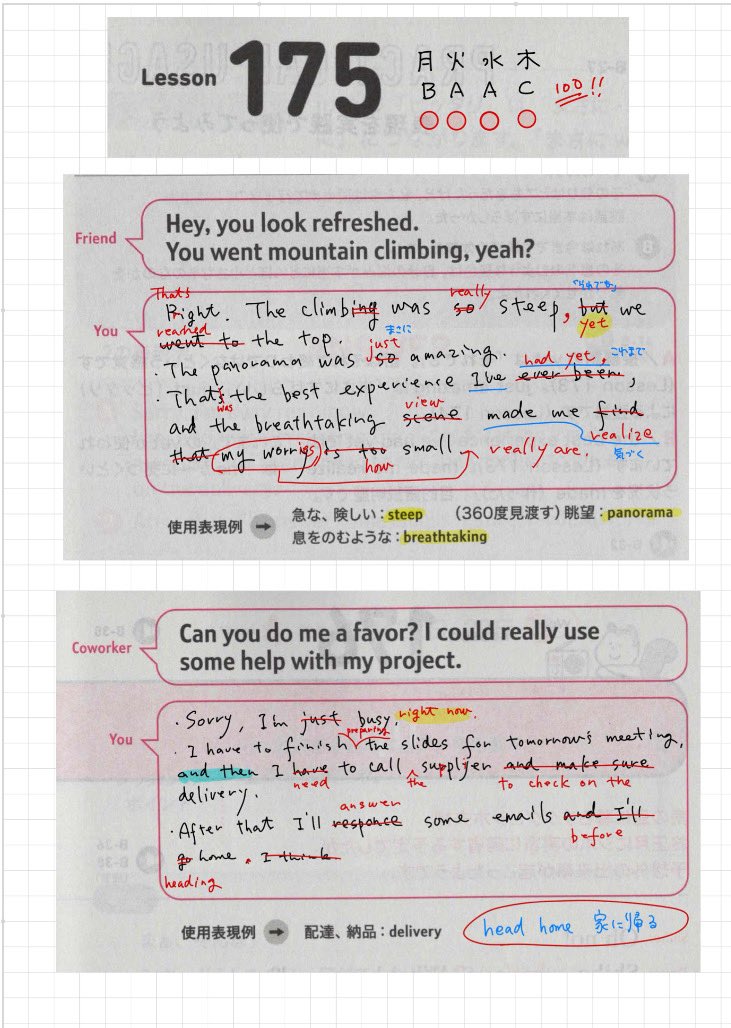 Lesson 175
月 火 水 木
B A A C
100!!
Friend
Hey, you look refreshed.
You went mountain climbing, yeah?
You
That's really 「それでも」
Right. The climbing was so steep, but we
reached yet
went to the top. just まさに
・The panorama was so amazing. had yet, これまで
・That's the best experience I've ever been,
was view
and the breathtaking scene made me find
realize
that my worries is too small really are. 気づく
how
使用表現例 → 急な、険しい：steep （360度見渡す）眺望：panorama
息をのむような：breathtaking
Coworker
Can you do me a favor? I could really use
some help with my project.
You
・Sorry, I'm just busy. right now.
preparing
・I have to finish the slides for tomorrow's meeting,
and then I have to call supplyer and make sure
need the to check on the
delivery.
answer
・After that I'll responce some emails and I'll
before
go home. I think
heading
使用表現例 → 配達、納品：delivery
head home 家に帰る